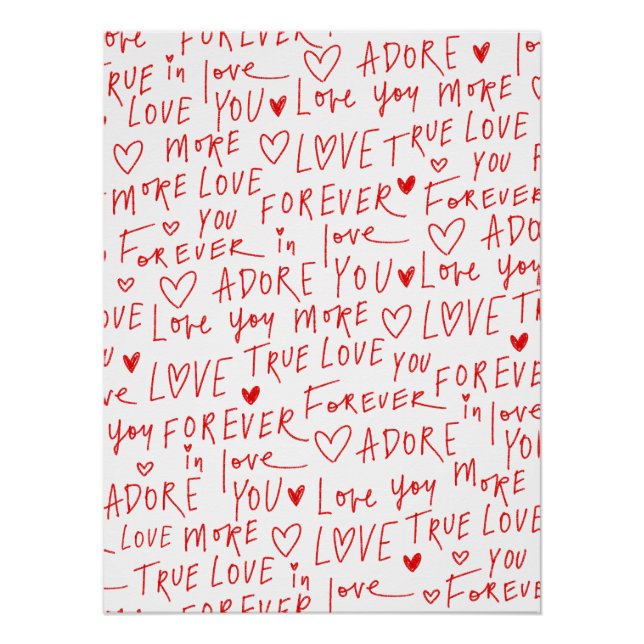 Love FOREVER
TRUE in love ♡ ADORE ♥ love
LOVE YOU ♥ Love you MORE
♡ MORE ♡ LOVE TRUE LOVE
MORE LOVE ♡ YOU
♡ YOU FOREVER ♥ FOREVER
FOREVER in love ♡ ADO
♡ ♡ ADORE YOU ♥ Love you
OVE Love you MORE ♡ LOVE TRUE
♥ LOVE TRUE LOVE YOU ♥
ve ♥ FOREVER
you FOREVER FOREVER in love
♡ in love ♡ ADORE YOU
ADORE YOU ♥ Love you MORE
LOVE MORE ♡ LOVE TRUE LOVE
TRUE LOVE in love ♥ ♡ YOU
MORE FOREVER ♡ FOREVER